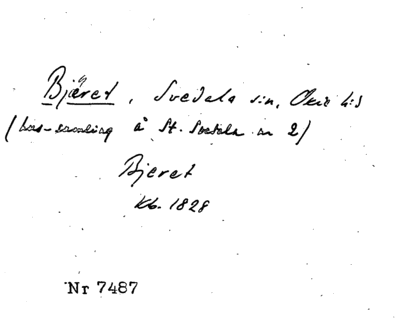 Bjäret, Svedala sn, Oxie hd
(bas-samling å St. Svedala nr 2)
Bjeret
Kb. 1828
Nr 7487